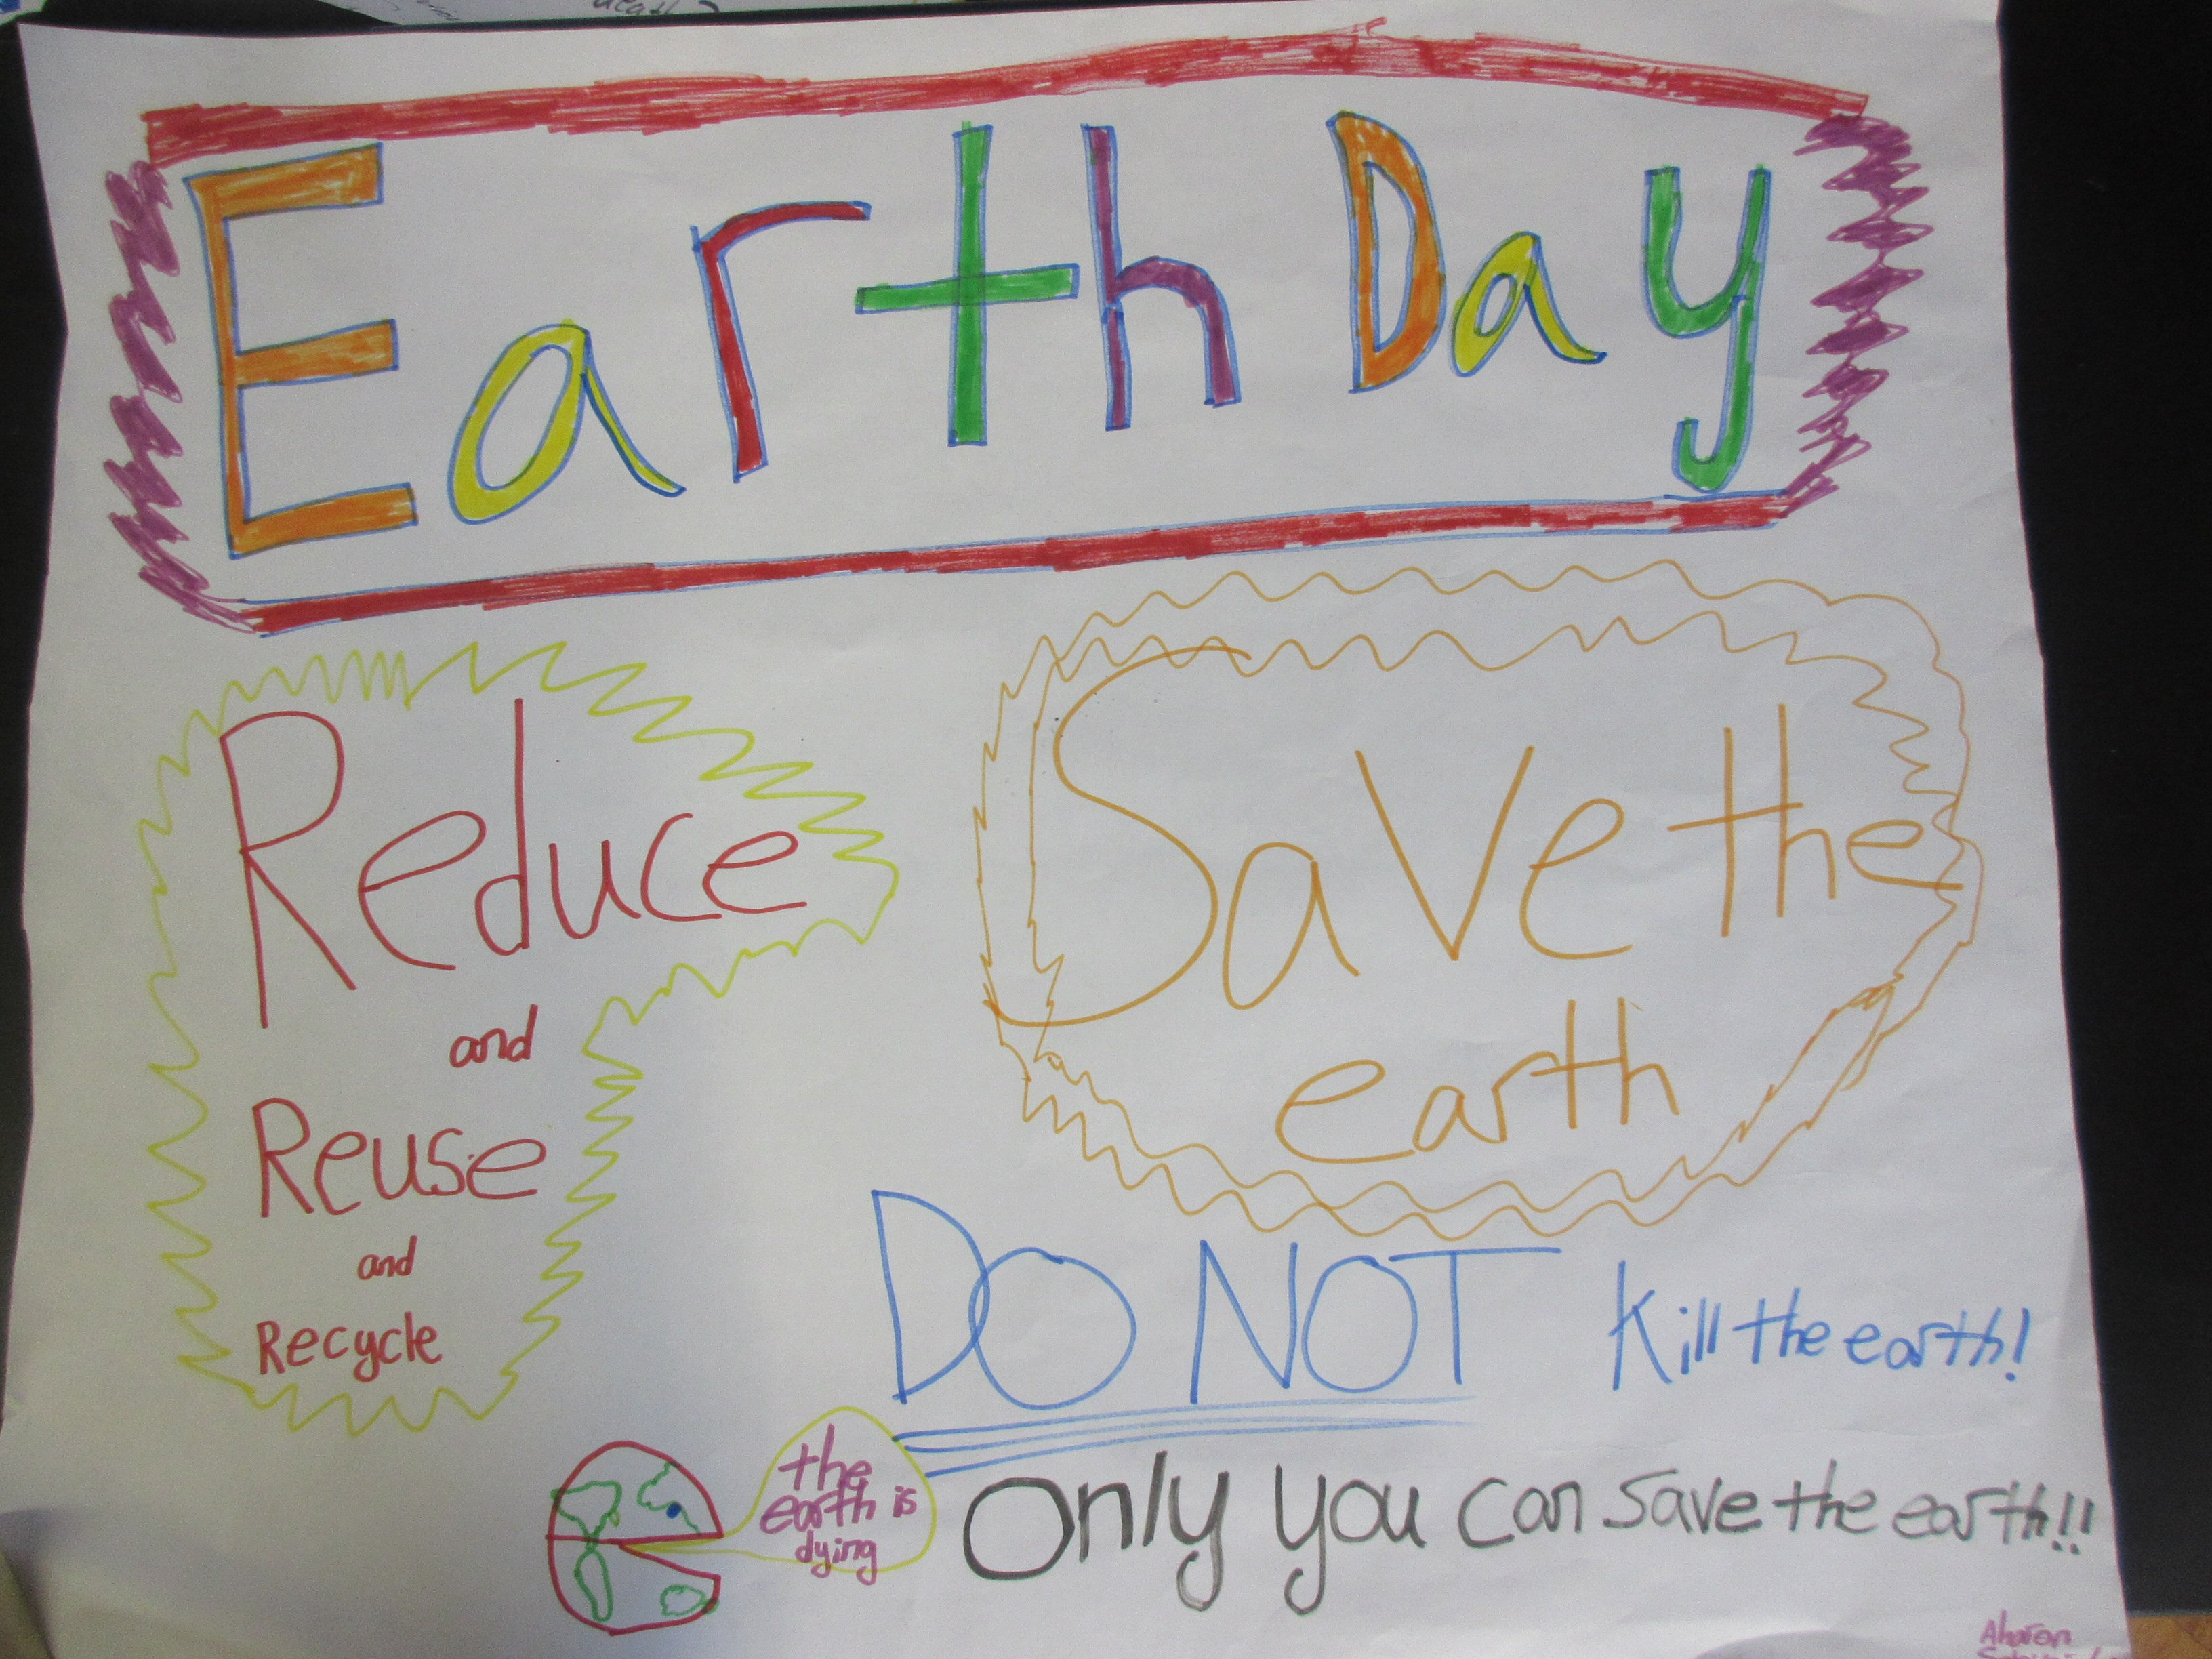 Earth Day
Reduce
and
Reuse
and
Recycle
Save the
earth
DO NOT Kill the earth!
the
earth is
dying
Only you can save the earth!!
Aharon